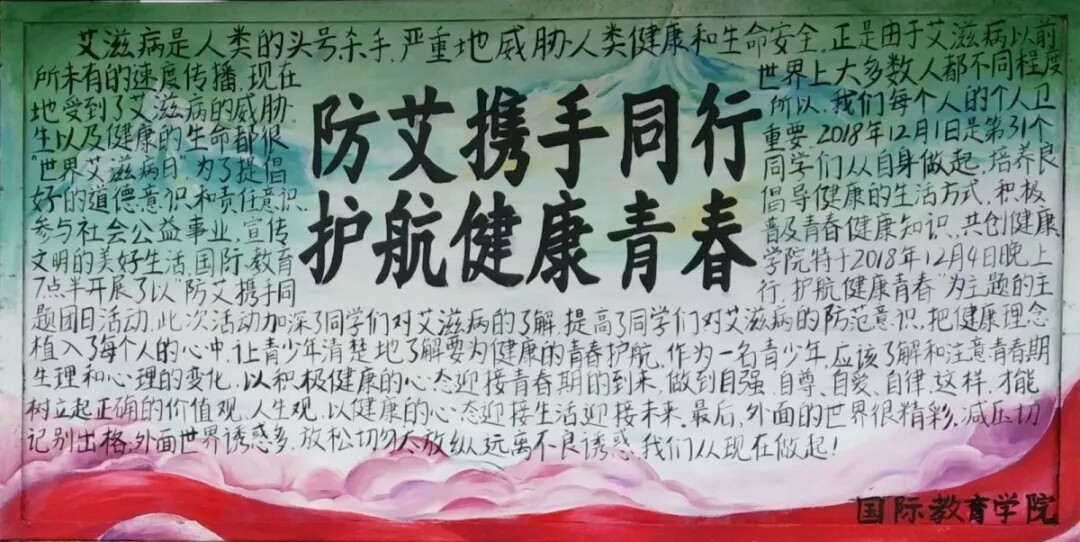 防艾携手同行
护航健康青春
艾滋病是人类的头号杀手,严重地威胁人类健康和生命安全.正是由于艾滋病以前
所未有的速度传播.现在 世界上大多数人都不同程度
地受到了艾滋病的威胁. 所以,我们每个人的个人卫
生以及健康的生命都很 重要.2018年12月1日是第31个
“世界艾滋病日”.为了提倡 同学们从自身做起,培养良
好的道德意识和责任意识, 倡导健康的生活方式,积极
参与社会公益事业,宣传 普及青春健康知识,共创健康
文明的美好生活.国际教育 学院特于2018年12月4日晚上
7点半开展了以“防艾携手同 行,护航健康青春”为主题的主
题团日活动.此次活动加深了同学们对艾滋病的了解,提高了同学们对艾滋病的防范意识,把健康理念
植入了每个人的心中,让青少年清楚地了解要为健康的青春护航,作为一名青少年,应该了解和注意青春期
生理和心理的变化,以积极健康的心态迎接青春期的到来,做到自强、自尊、自爱、自律.这样,才能
树立起正确的价值观,人生观,以健康的心态迎接生活迎接未来.最后,外面的世界很精彩,减压切
记别出格,外面世界诱惑多,放松切勿太放纵,远离不良诱惑,我们从现在做起!
国际教育学院